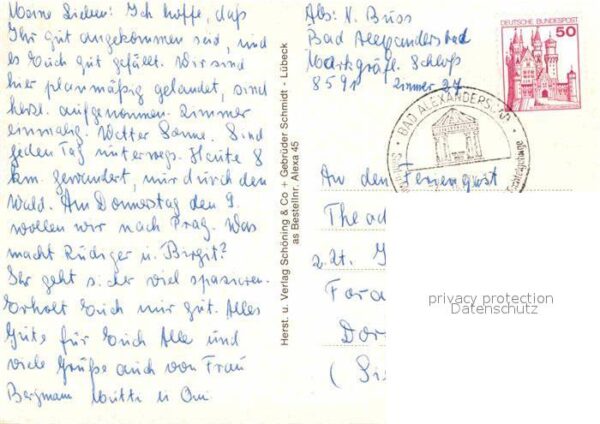 Meine Lieben: Ich hoffe, daß
Ihr gut angekommen seid, und
es Euch gut gefällt. Wir sind
hier planmäßig gelandet, sind
herzl. aufgenommen. Zimmer
einmalig. Wetter Sonne. Sind
jeden Tag unterwegs. Heute 8
km. gewandert, nur durch den
Wald. Am Donnerstag den 9.
wollen wir nach Prag. Was
macht Rüdiger u. Birgit?
Ihr geht sicher viel spazieren.
Erholt Euch nur gut. Alles
Gute für Euch Alle und
viele Grüße auch von Frau
Bergmann Mutti u Omi
Herst. u. Verlag Schöning & Co + Gebrüder Schmidt - Lübeck
as Bestellnr. Alexa 45
Abs: N. Buss
Bad Alexandersbad
Markgräfl. Schloß
8591 Zimmer 27
DEUTSCHE BUNDESPOST
50
BAD ALEXANDERSBAD
An den Feriengast
Theod
z. Zt.
Fora
Dor
(Si
privacy protection
Datenschutz